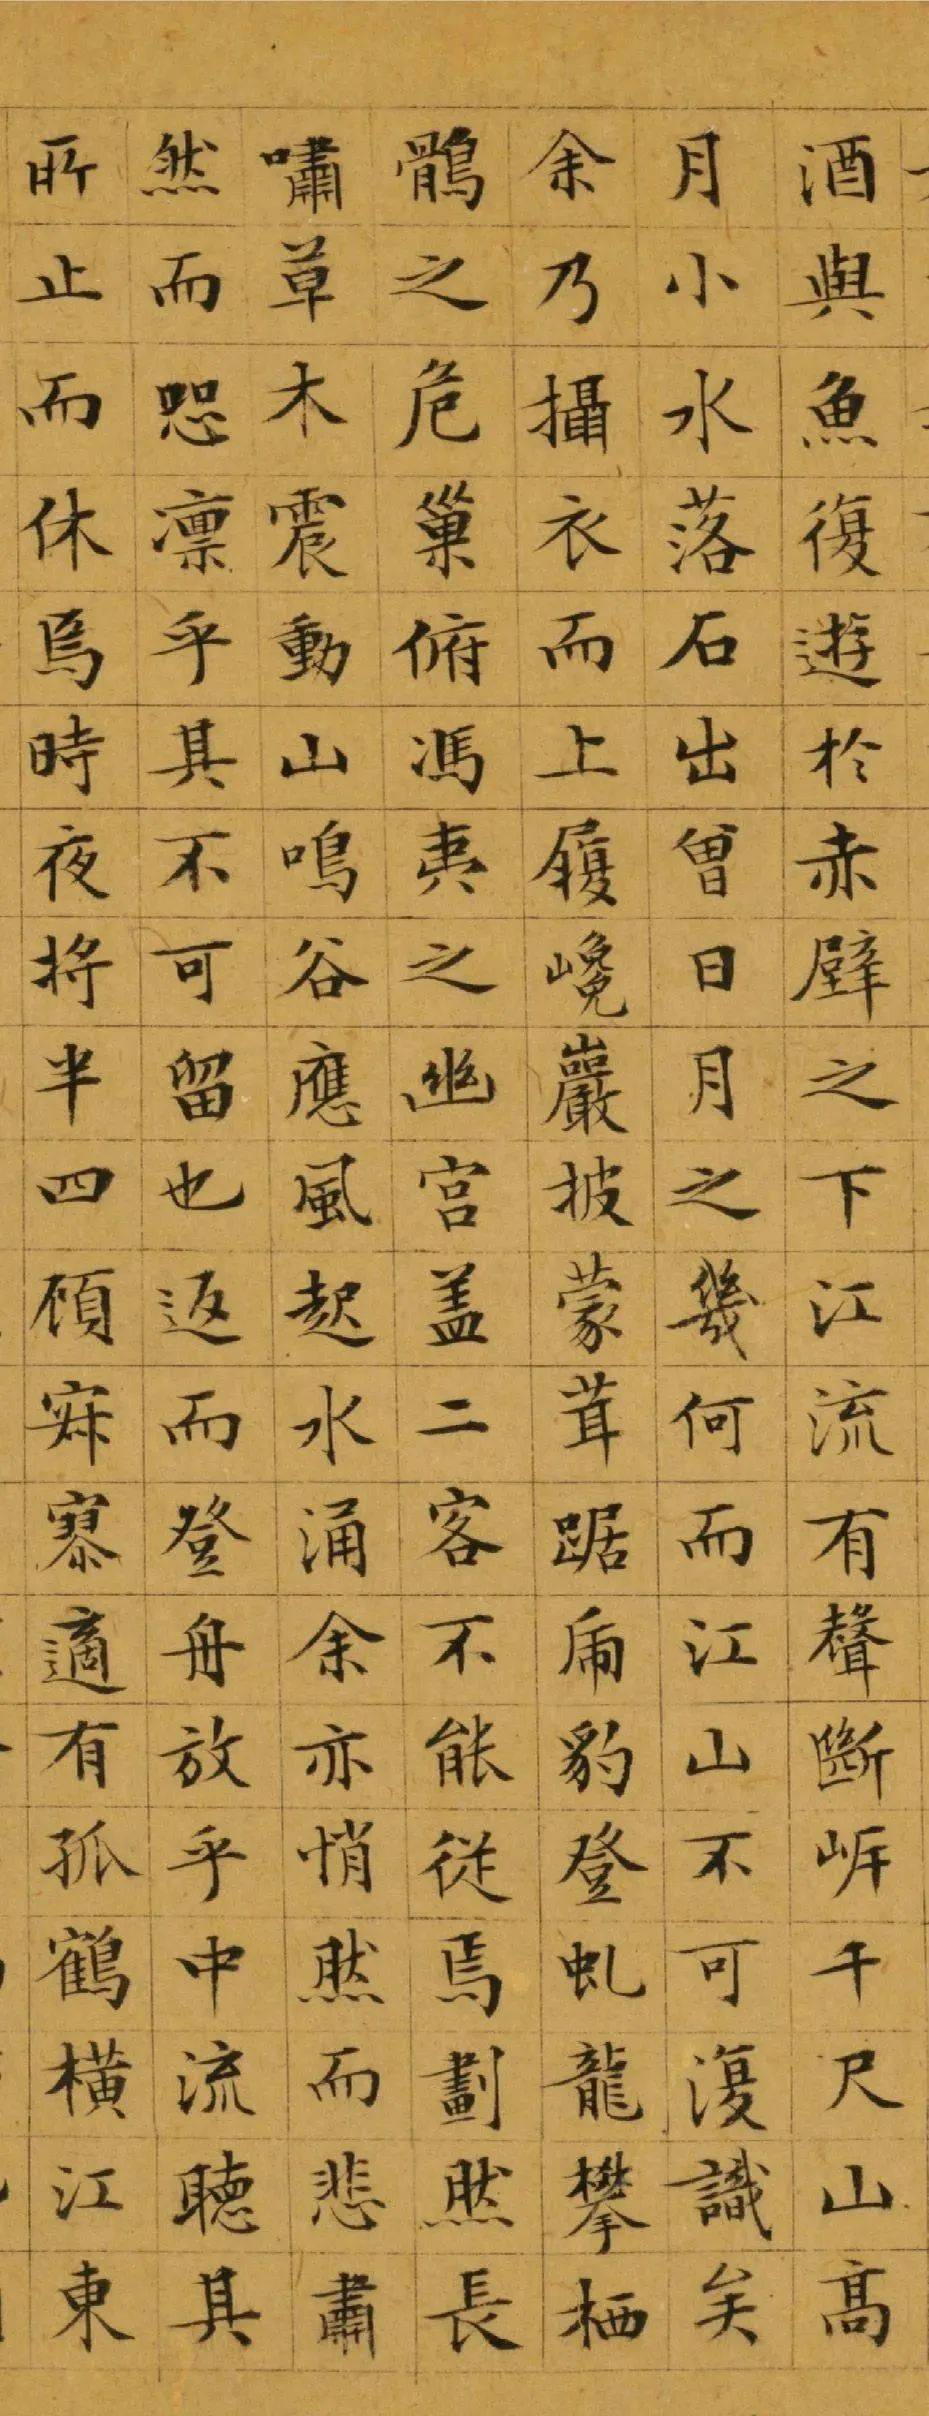 酒與魚復遊於赤壁之下江流有聲斷岸千尺山高
月小水落石出曾日月之幾何而江山不可復識矣
余乃攝衣而上履巉巖披蒙茸踞虎豹登虬龍攀栖
鶻之危巢俯馮夷之幽宮蓋二客不能從焉劃然長
嘯草木震動山鳴谷應風起水涌余亦悄然而悲肅
然而恐凛乎其不可留也返而登舟放乎中流聽其
所止而休焉時夜將半四顧寂寥適有孤鶴橫江東